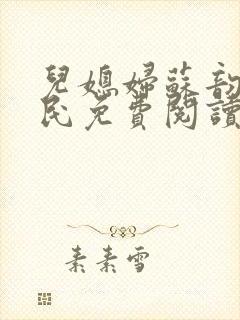 兒媳婦蘇韵
民免費閱讀
素素雪